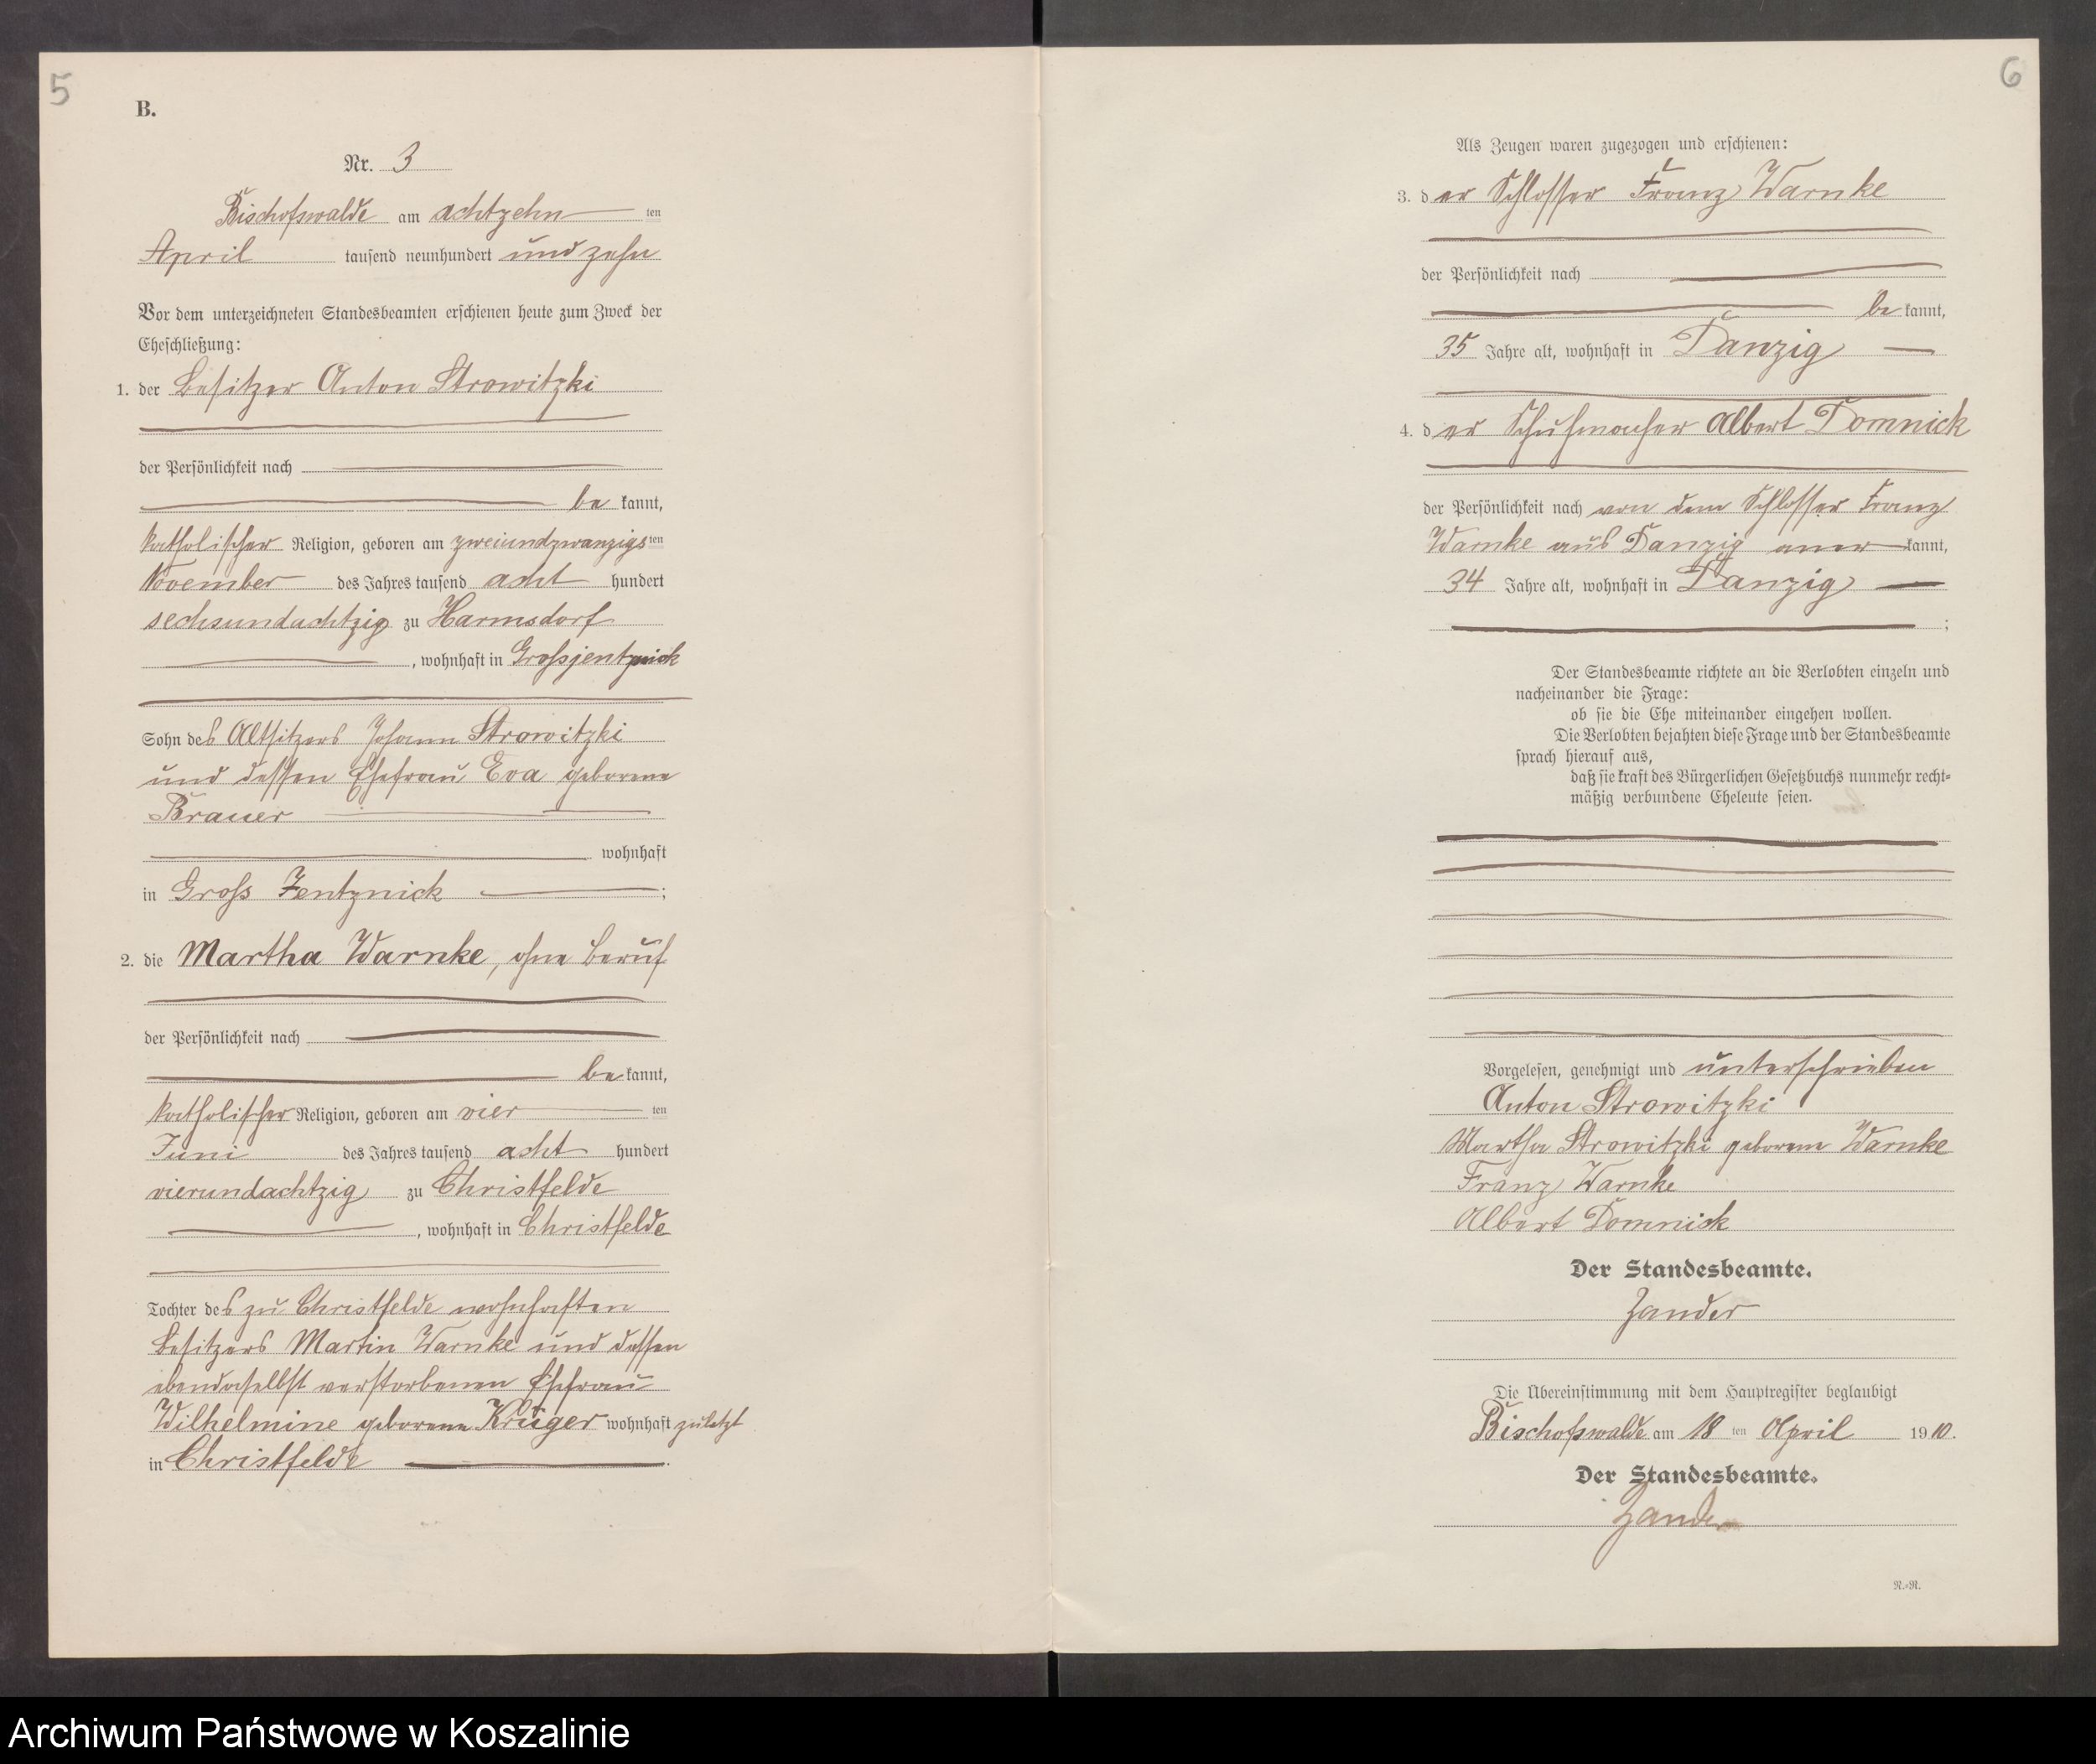 5
B.
Nr. 3
Bischofswalde am achtzehn ten
April tausend neunhundert und zehn
Vor dem unterzeichneten Standesbeamten erschienen heute zum Zweck der
Eheschließung:
1. der Besitzer Anton Strowitzki
der Persönlichkeit nach
be kannt,
katholischer Religion, geboren am zweiundzwanzigs ten
November des Jahres tausend acht hundert
sechsundachtzig zu Harmsdorf
, wohnhaft in Grossjentznick
Sohn des Altsitzers Johann Strowitzki
und dessen Ehefrau Eva geborene
Brauer
wohnhaft
in Gross Jentznick ;
2. die Martha Warnke, ohne Beruf
der Persönlichkeit nach
be kannt,
katholischer Religion, geboren am vier ten
Juni des Jahres tausend acht hundert
vierundachtzig zu Christfelde
, wohnhaft in Christfelde
Tochter des zu Christfelde wohnhaften
Besitzers Martin Warnke und dessen
ebendaselbst verstorbenen Ehefrau
Wilhelmine geborene Krüger wohnhaft zuletzt
in Christfelde .
6
Als Zeugen waren zugezogen und erschienen:
3. der Schlosser Franz Warnke
der Persönlichkeit nach
be kannt,
35 Jahre alt, wohnhaft in Danzig
4. der Schuhmacher Albert Domnick
der Persönlichkeit nach von dem Schlosser Franz
Warnke aus Danzig aner kannt,
34 Jahre alt, wohnhaft in Danzig
;
Der Standesbeamte richtete an die Verlobten einzeln und
nacheinander die Frage:
ob sie die Ehe miteinander eingehen wollen.
Die Verlobten bejahten diese Frage und der Standesbeamte
sprach hierauf aus,
daß sie kraft des Bürgerlichen Gesetzbuchs nunmehr recht-
mäßig verbundene Eheleute seien.
Vorgelesen, genehmigt und unterschrieben
Anton Strowitzki
Martha Strowitzki geborene Warnke
Franz Warnke
Albert Domnick
Der Standesbeamte.
Zander
Die Übereinstimmung mit dem Hauptregister beglaubigt
Bischofswalde am 18 ten April 1910.
Der Standesbeamte.
Zander
N.-N.
Archiwum Państwowe w Koszalinie